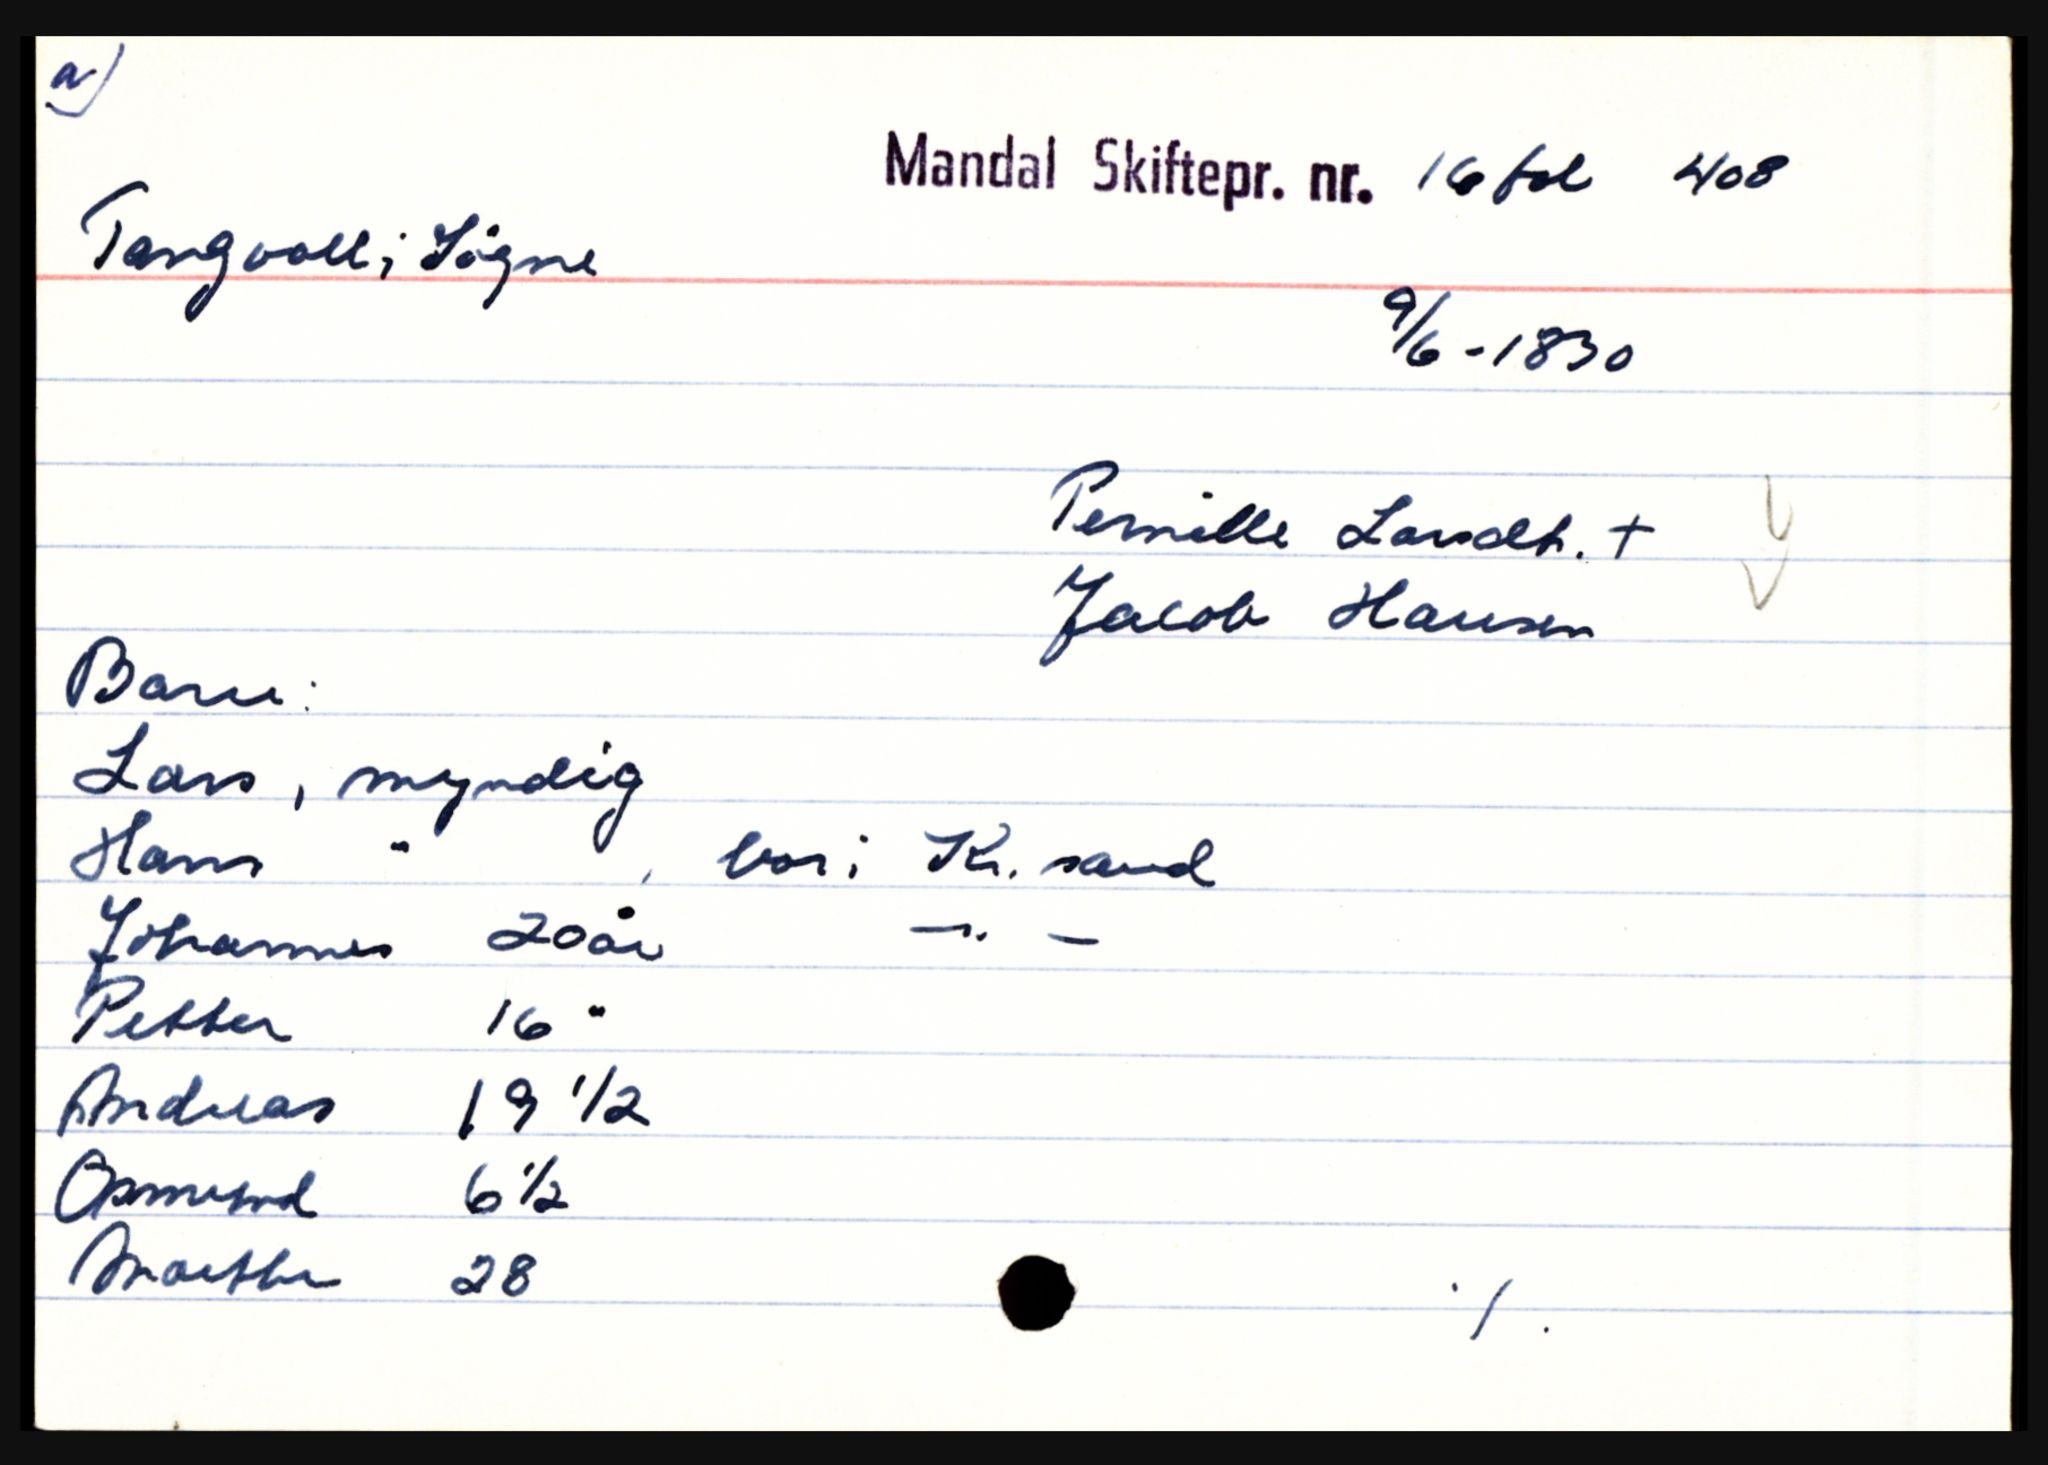 a)
Mandal Skiftepr. nr. 16 fol 408
Tangvall i Søgne
9/6 - 1830
Pernille Larsdt. +
Jacob Hansen
Barn:
Lars, myndig
Hans " , bor i Kr. sand
Johannes 20 år — " —
Petter 16 "
Andreas 19 1/2
Osmund 6 1/2
Marthe 28
./.